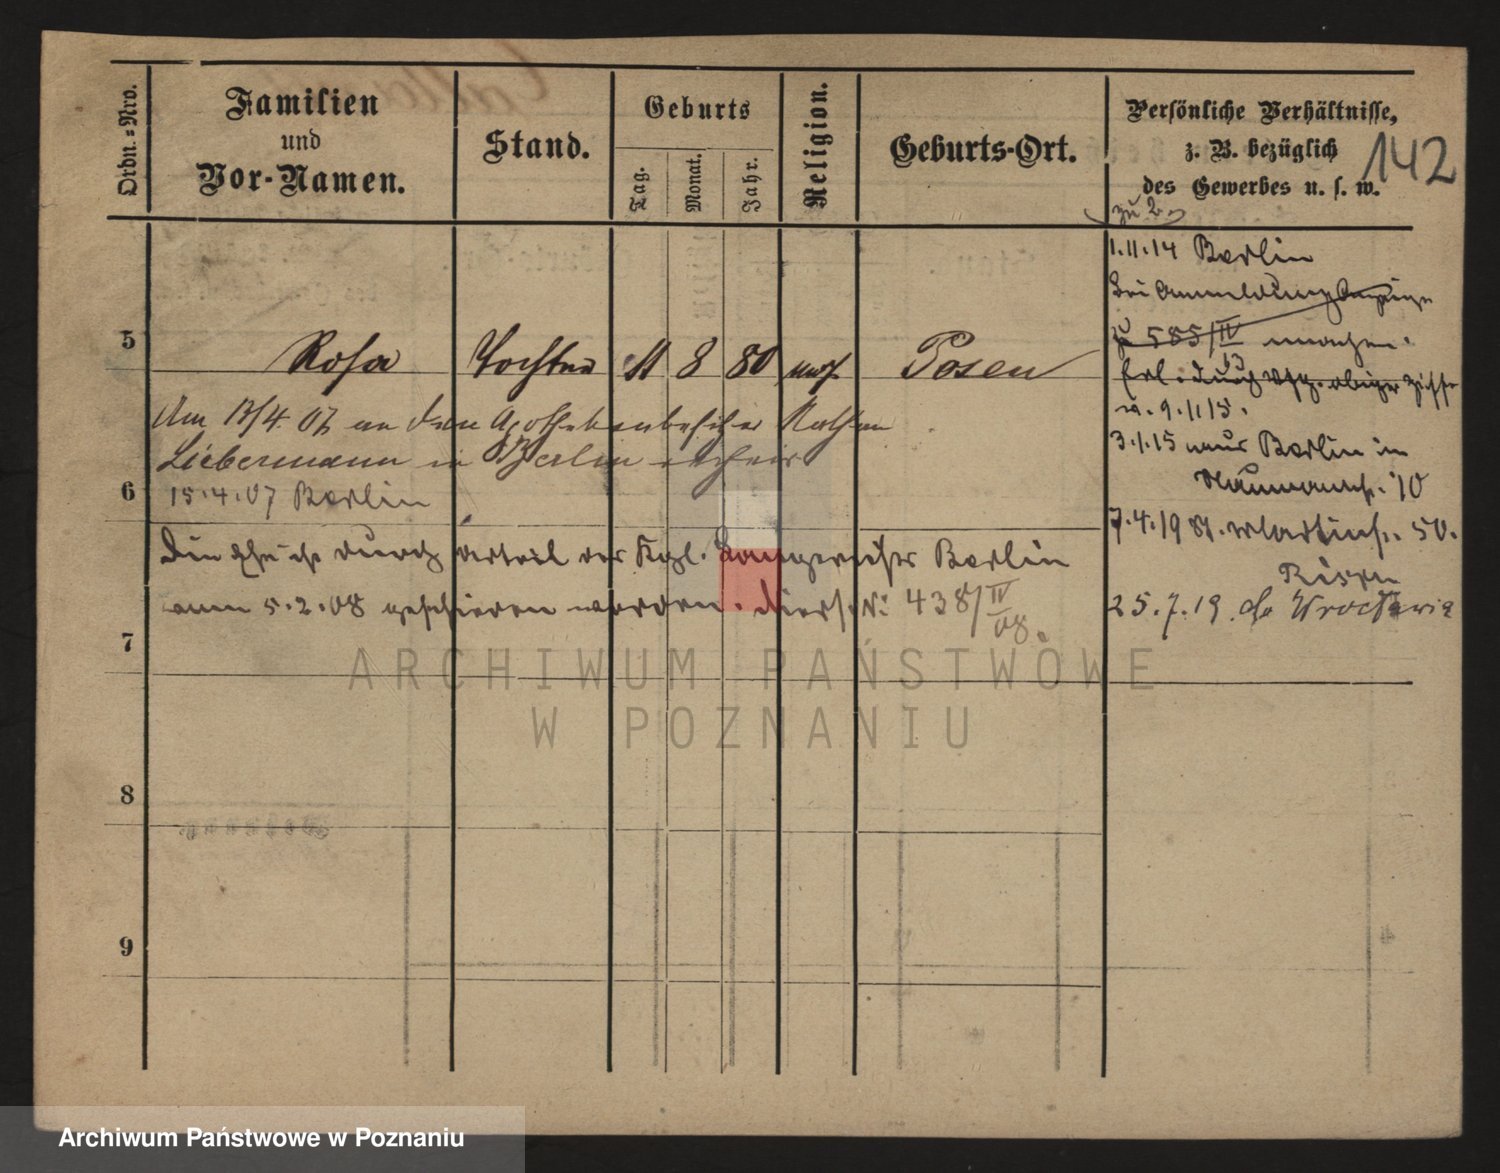 Ordn.=Nro.
Familien
und
Vor-Namen.
Stand.
Geburts
Tag.
Monat.
Jahr.
Religion.
Geburts-Ort.
Persönliche Verhältnisse,
z. B. bezüglich
des Gewerbes u. s. w.
142
zu 2.
5
Rosa Tochter 11 8 80 mos. Posen
Am 13/4. 07 an den Apothekenbesitzer Nathan
Liebermann in Berlin verheir.
6
15.4.07 Berlin
Die Ehe ist durch Urteil des Kgl. Landgerichts Berlin
vom 5.2.08 geschieden worden. diess. No 438/IV
08.
7
8
9
1.11.14 Berlin
bei Anmeldung Anzeige
zu 585/IV machen.
13
Erl. durch Vfg. obiger Ziffer
v. 9.1.15.
3.1.15 aus Berlin in
Naumannstr. 10
7.4.19 St. Martinstr. 50.
25.7.19 do Wrocławia
ARCHIWUM PAŃSTWOWE
W POZNANIU
Archiwum Państwowe w Poznaniu